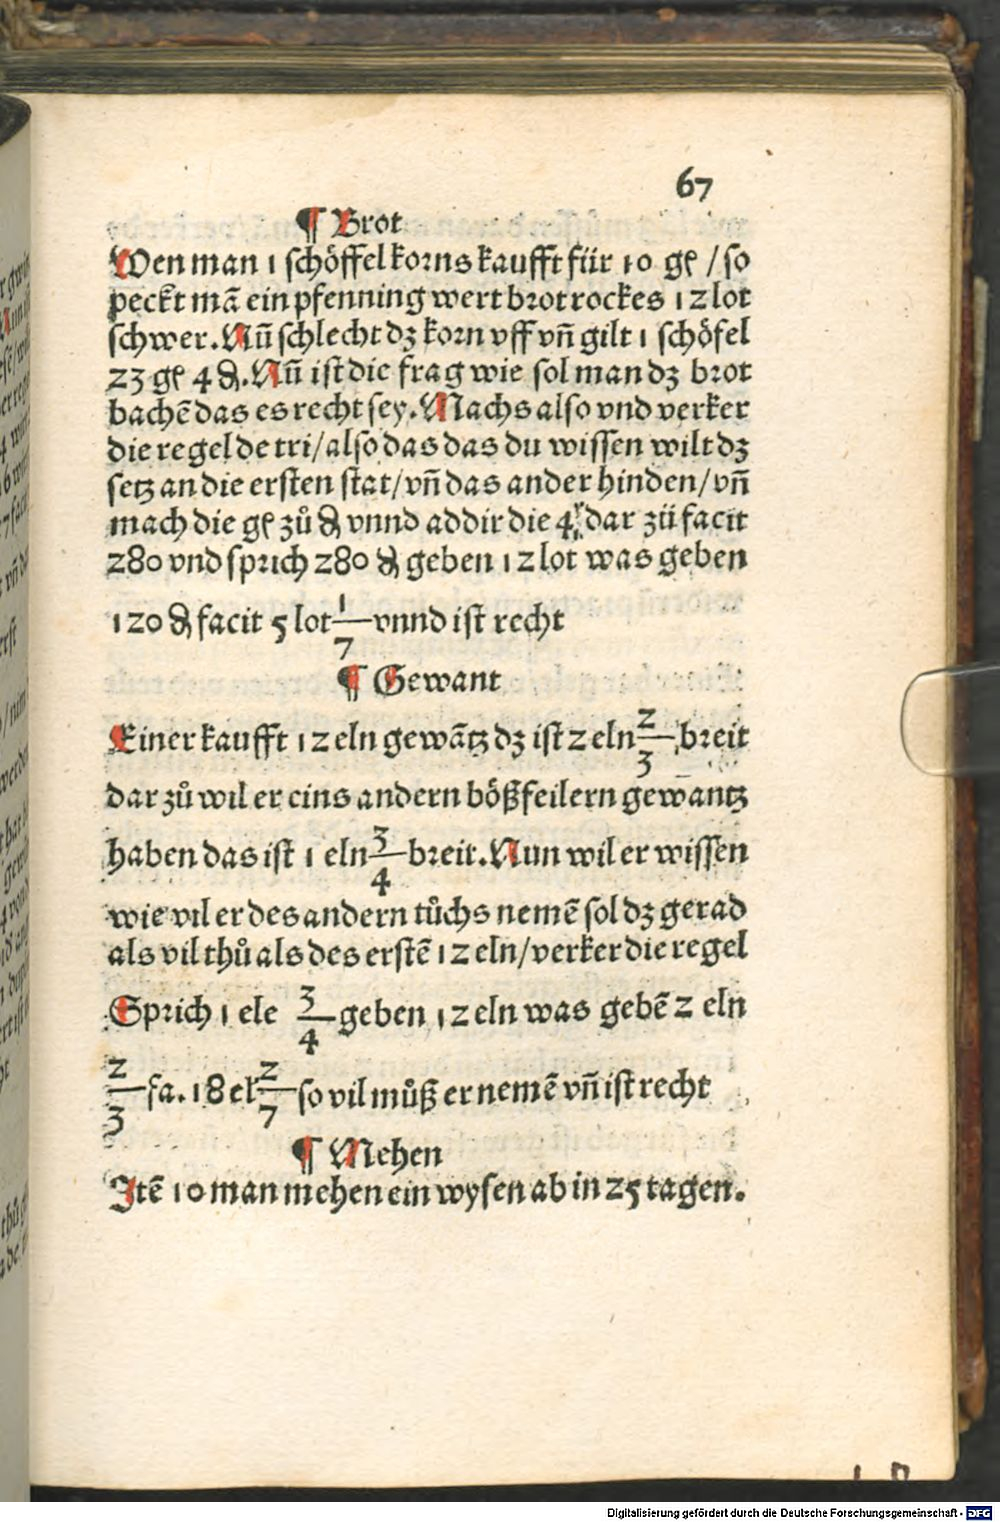 67
¶ Brot
Wen man 1 schöffel korns kaufft für 10 gꝭ / so
peckt mā ein pfenning wert brot rockes 12 lot
schwer. Nū schlecht dꝫ korn vff vñ gilt 1 schöfel
23 gꝭ 4 ₰. Nū ist die frag wie sol man dꝫ brot
bachē das es recht sey. Machs also vnd verker
die regel de tri / also das das du wissen wilt dꝫ
setz an die ersten stat / vñ das ander hinden / vñ
mach die gꝭ zů ₰ vnnd addir die 4 dar zü facit
280 vnd sprich 280 ₰ geben 12 lot was geben
120 ₰ facit 5 lot 1/7 vnnd ist recht
¶ Gewant
Einer kaufft 12 eln gewātz dꝫ ist 2 eln 2/3 breit
dar zů wil er eins andern bößfeilern gewantz
haben das ist 1 eln 3/4 breit. Nun wil er wissen
wie vil er des andern tůchs nemē sol dꝫ gerad
als vil thů als des erstē 12 eln / verker die regel
Sprich 1 ele 3/4 geben 12 eln was gebē 2 eln
2/3 fa. 18 el 2/7 so vil můß er nemē vñ ist recht
¶ Mehen
Itē 10 man mehen ein wysen ab in 25 tagen.
Digitalisierung gefördert durch die Deutsche Forschungsgemeinschaft - DFG